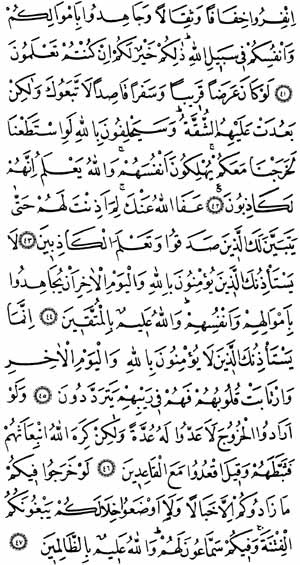 اِنْفِرُوا خِفَافًا وَثِقَالًا وَجَاهِدُوا بِاَمْوَالِكُمْ
وَاَنْفُسِكُمْ فِى سَبِيلِ اللّٰهِ ذٰلِكُمْ خَيْرٌ لَكُمْ اِنْ كُنْتُمْ تَعْلَمُونَ
﴿٤١﴾ لَوْ كَانَ عَرَضًا قَرِيبًا وَسَفَرًا قَاصِدًا لَاتَّبَعُوكَ وَلٰكِنْ
بَعُدَتْ عَلَيْهِمُ الشُّقَّةُ وَسَيَحْلِفُونَ بِاللّٰهِ لَوِ اسْتَطَعْنَا
لَخَرَجْنَا مَعَكُمْ يُهْلِكُونَ اَنْفُسَهُمْ وَاللّٰهُ يَعْلَمُ اِنَّهُمْ
لَكَاذِبُونَ ﴿٤٢﴾ عَفَا اللّٰهُ عَنْكَ لِمَ اَذِنْتَ لَهُمْ حَتّٰى
يَتَبَيَّنَ لَكَ الَّذِينَ صَدَقُوا وَتَعْلَمَ الْكَاذِبِينَ ﴿٤٣﴾ لَا
يَسْتَأْذِنُكَ الَّذِينَ يُؤْمِنُونَ بِاللّٰهِ وَالْيَوْمِ الْاٰخِرِ اَنْ يُجَاهِدُوا
بِاَمْوَالِهِمْ وَاَنْفُسِهِمْ وَاللّٰهُ عَلِيمٌ بِالْمُتَّقِينَ ﴿٤٤﴾ اِنَّمَا
يَسْتَأْذِنُكَ الَّذِينَ لَا يُؤْمِنُونَ بِاللّٰهِ وَالْيَوْمِ الْاٰخِرِ
وَارْتَابَتْ قُلُوبُهُمْ فَهُمْ فِى رَيْبِهِمْ يَتَرَدَّدُونَ ﴿٤٥﴾ وَلَوْ
اَرَادُوا الْخُرُوجَ لَاَعَدُّوا لَهُ عُدَّةً وَلٰكِنْ كَرِهَ اللّٰهُ انْبِعَاثَهُمْ
فَثَبَّطَهُمْ وَقِيلَ اقْعُدُوا مَعَ الْقَاعِدِينَ ﴿٤٦﴾ لَوْ خَرَجُوا فِيكُمْ
مَا زَادُوكُمْ اِلَّا خَبَالًا وَلَاَوْضَعُوا خِلَالَكُمْ يَبْغُونَكُمُ
الْفِتْنَةَ وَفِيكُمْ سَمَّاعُونَ لَهُمْ وَاللّٰهُ عَلِيمٌ بِالظَّالِمِينَ ﴿٤٧﴾